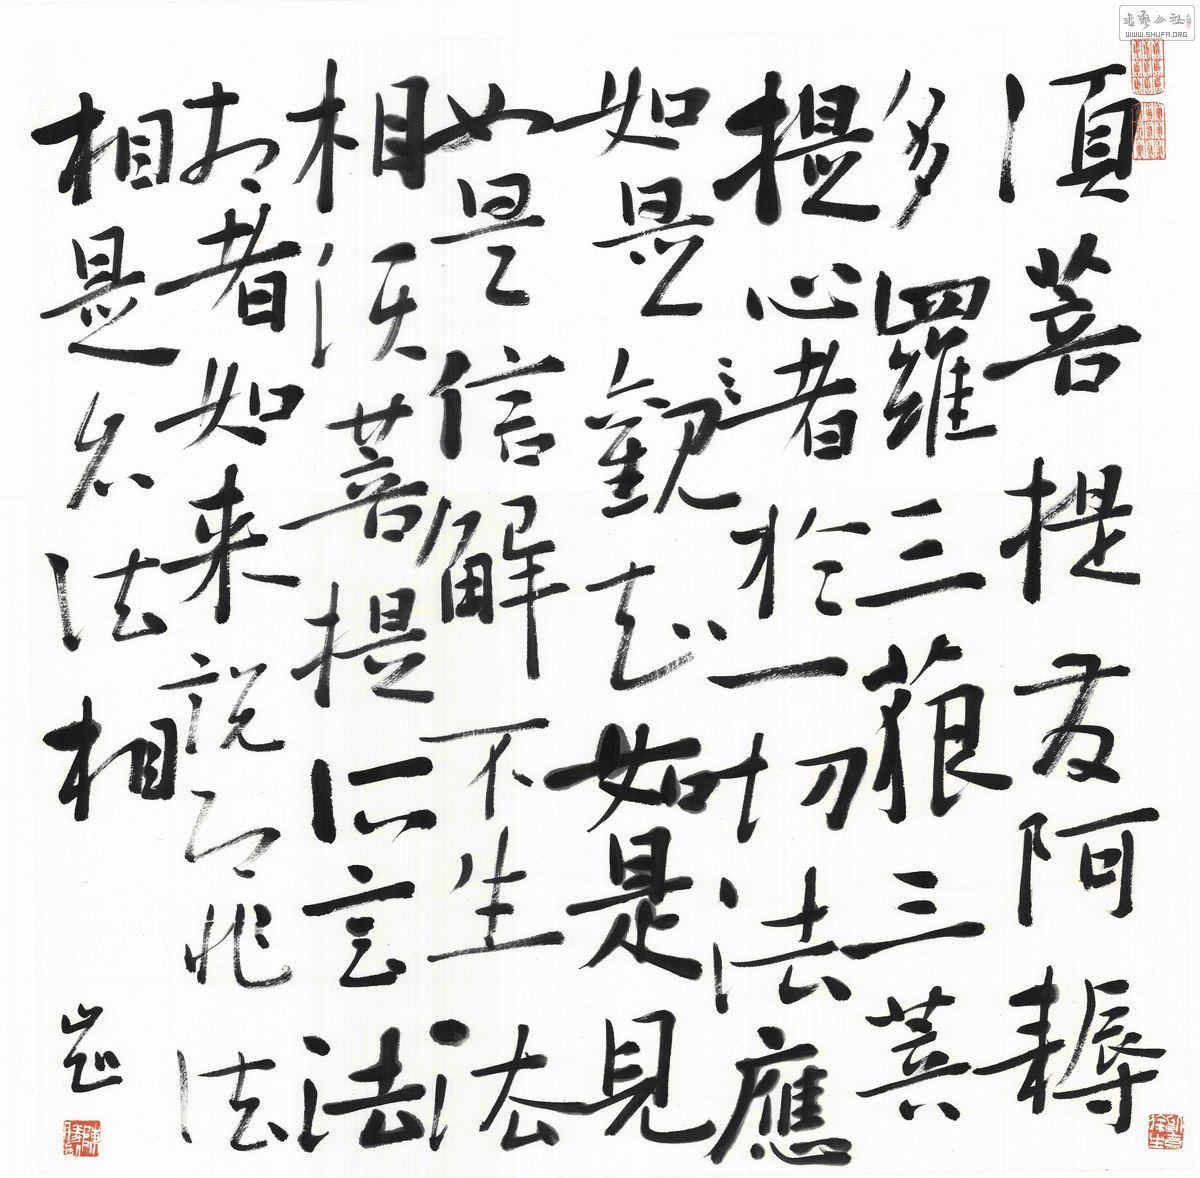 須菩提发阿耨
多羅三藐三菩
提心者於一切法應
如是觀知如是見
如是信解不生法
相須菩提所言法
相者如来説即非法
相是名法相
書藝公社
WWW.SHUFA.ORG